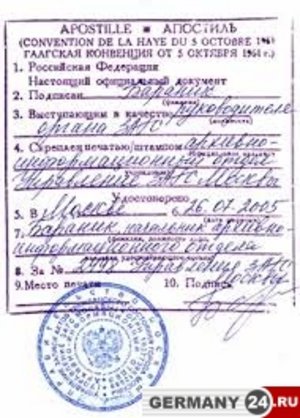 APOSTILLE ■ АПОСТИЛЬ
(CONVENTION DE LA HAYE DU 5 OCTOBRE 1961
ГААГСКАЯ КОНВЕНЦИЯ ОТ 5 ОКТЯБРЯ 1961 г.)
1. Российская Федерация
Настоящий официальный документ
2. Подписан Бараник
(фамилия)
3. Выступающим в качестве руководителя
органа ЗАГС
(должность)
4. Скреплен печатью/штампом архивно-
информационный отдел
Управление ЗАГС Москвы
Удостоверено
5. В Москве 6. 26.07.2005
7. Бараник, начальник архивно-
информационного отдела
8. За № Управления ЗАГС
Москвы
9. Место печати 10. Подпись
GERMANY 24.RU